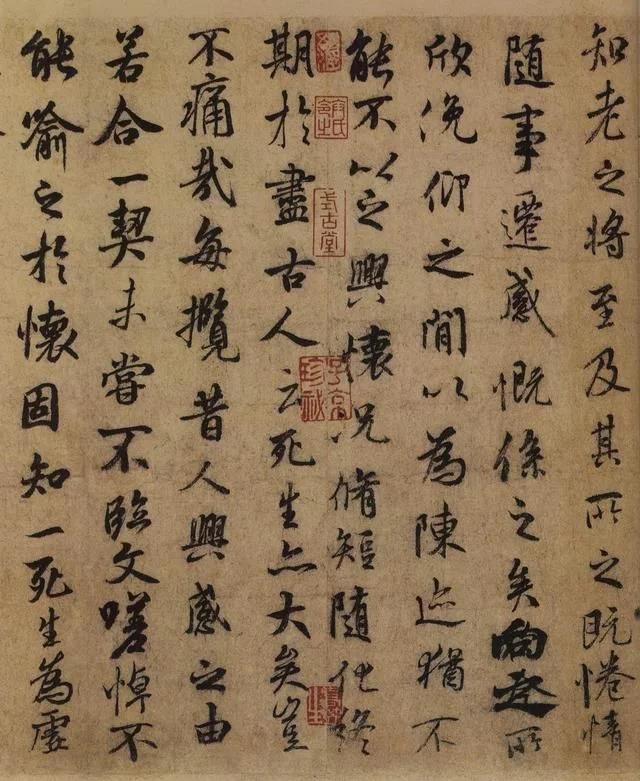 知老之将至及其所之既惓情
随事遷感慨係之矣向之所
欣俛仰之閒以為陳迹猶不
能不以之興懷况脩短随化終
期於盡古人云死生亦大矣豈
不痛哉每攬昔人興感之由
若合一契未嘗不臨文嗟悼不
能喻之於懷固知一死生為虛
式古堂